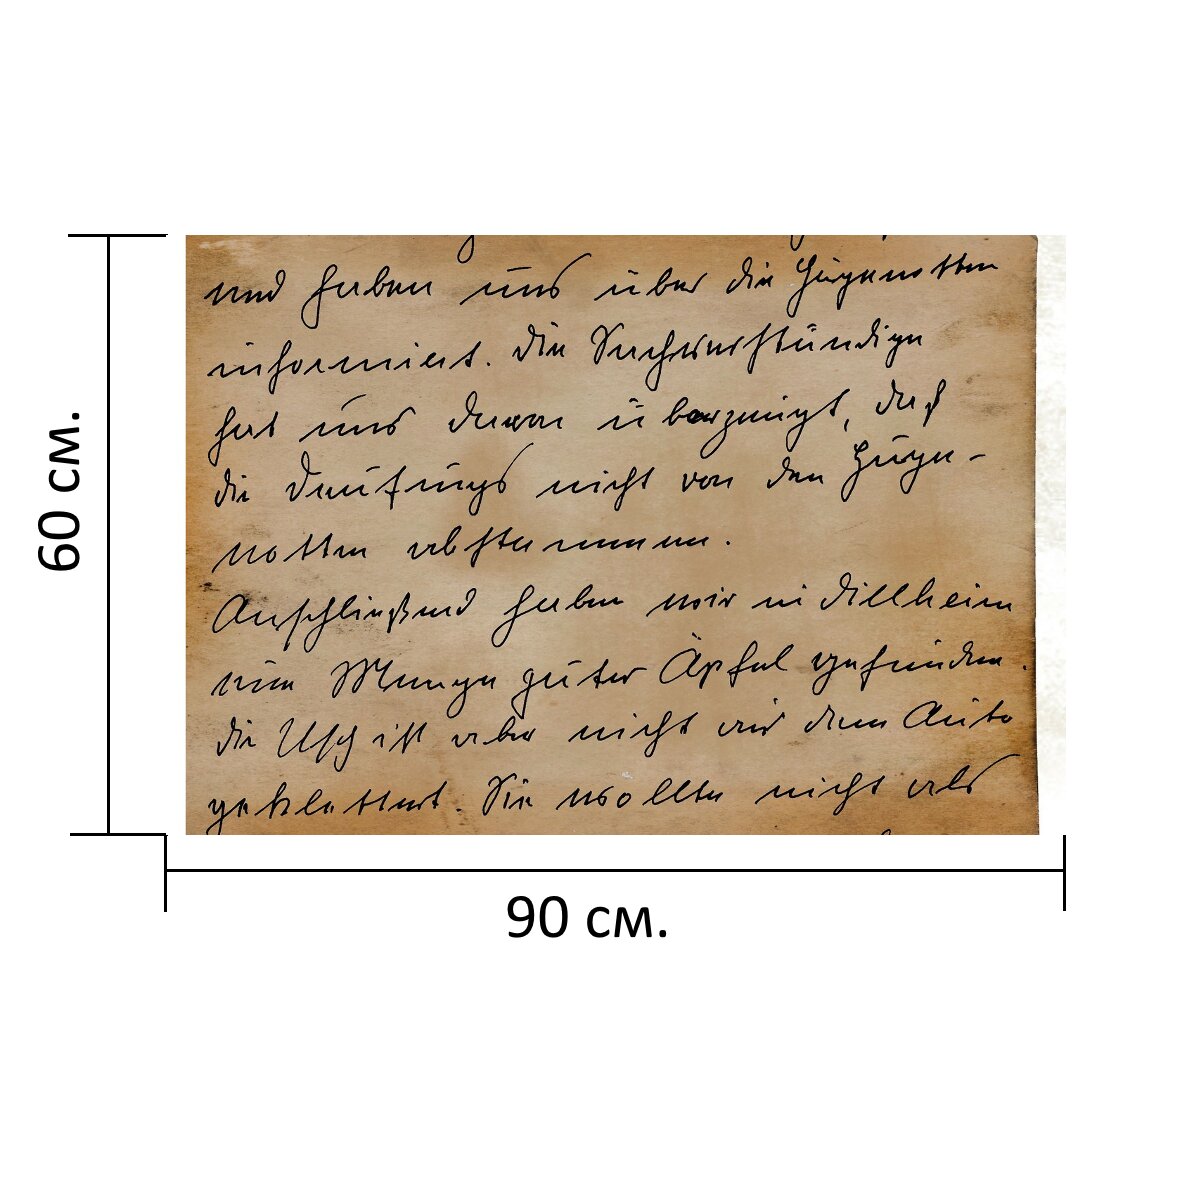 und haben uns über die Hugenotten
informiert. Die Sachverständige
hat uns davon überzeugt, daß
die nicht von den Huge-
notten abstammen.
Anschließend haben wir in Dillheim
eine Menge guter Äpfel gefunden.
die Usch ist aber nicht aus dem Auto
geklettert. Sie wollte nicht als
60 см.
90 см.